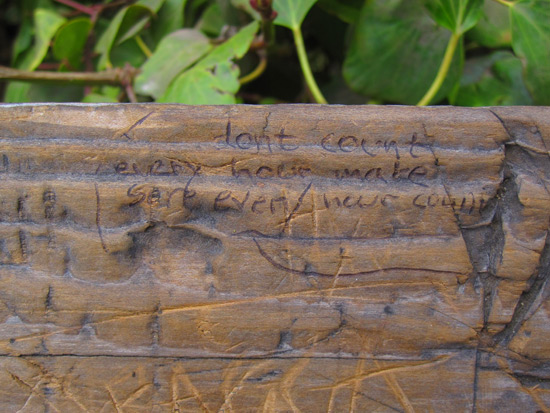 dont count
every hour make
sure every hour count